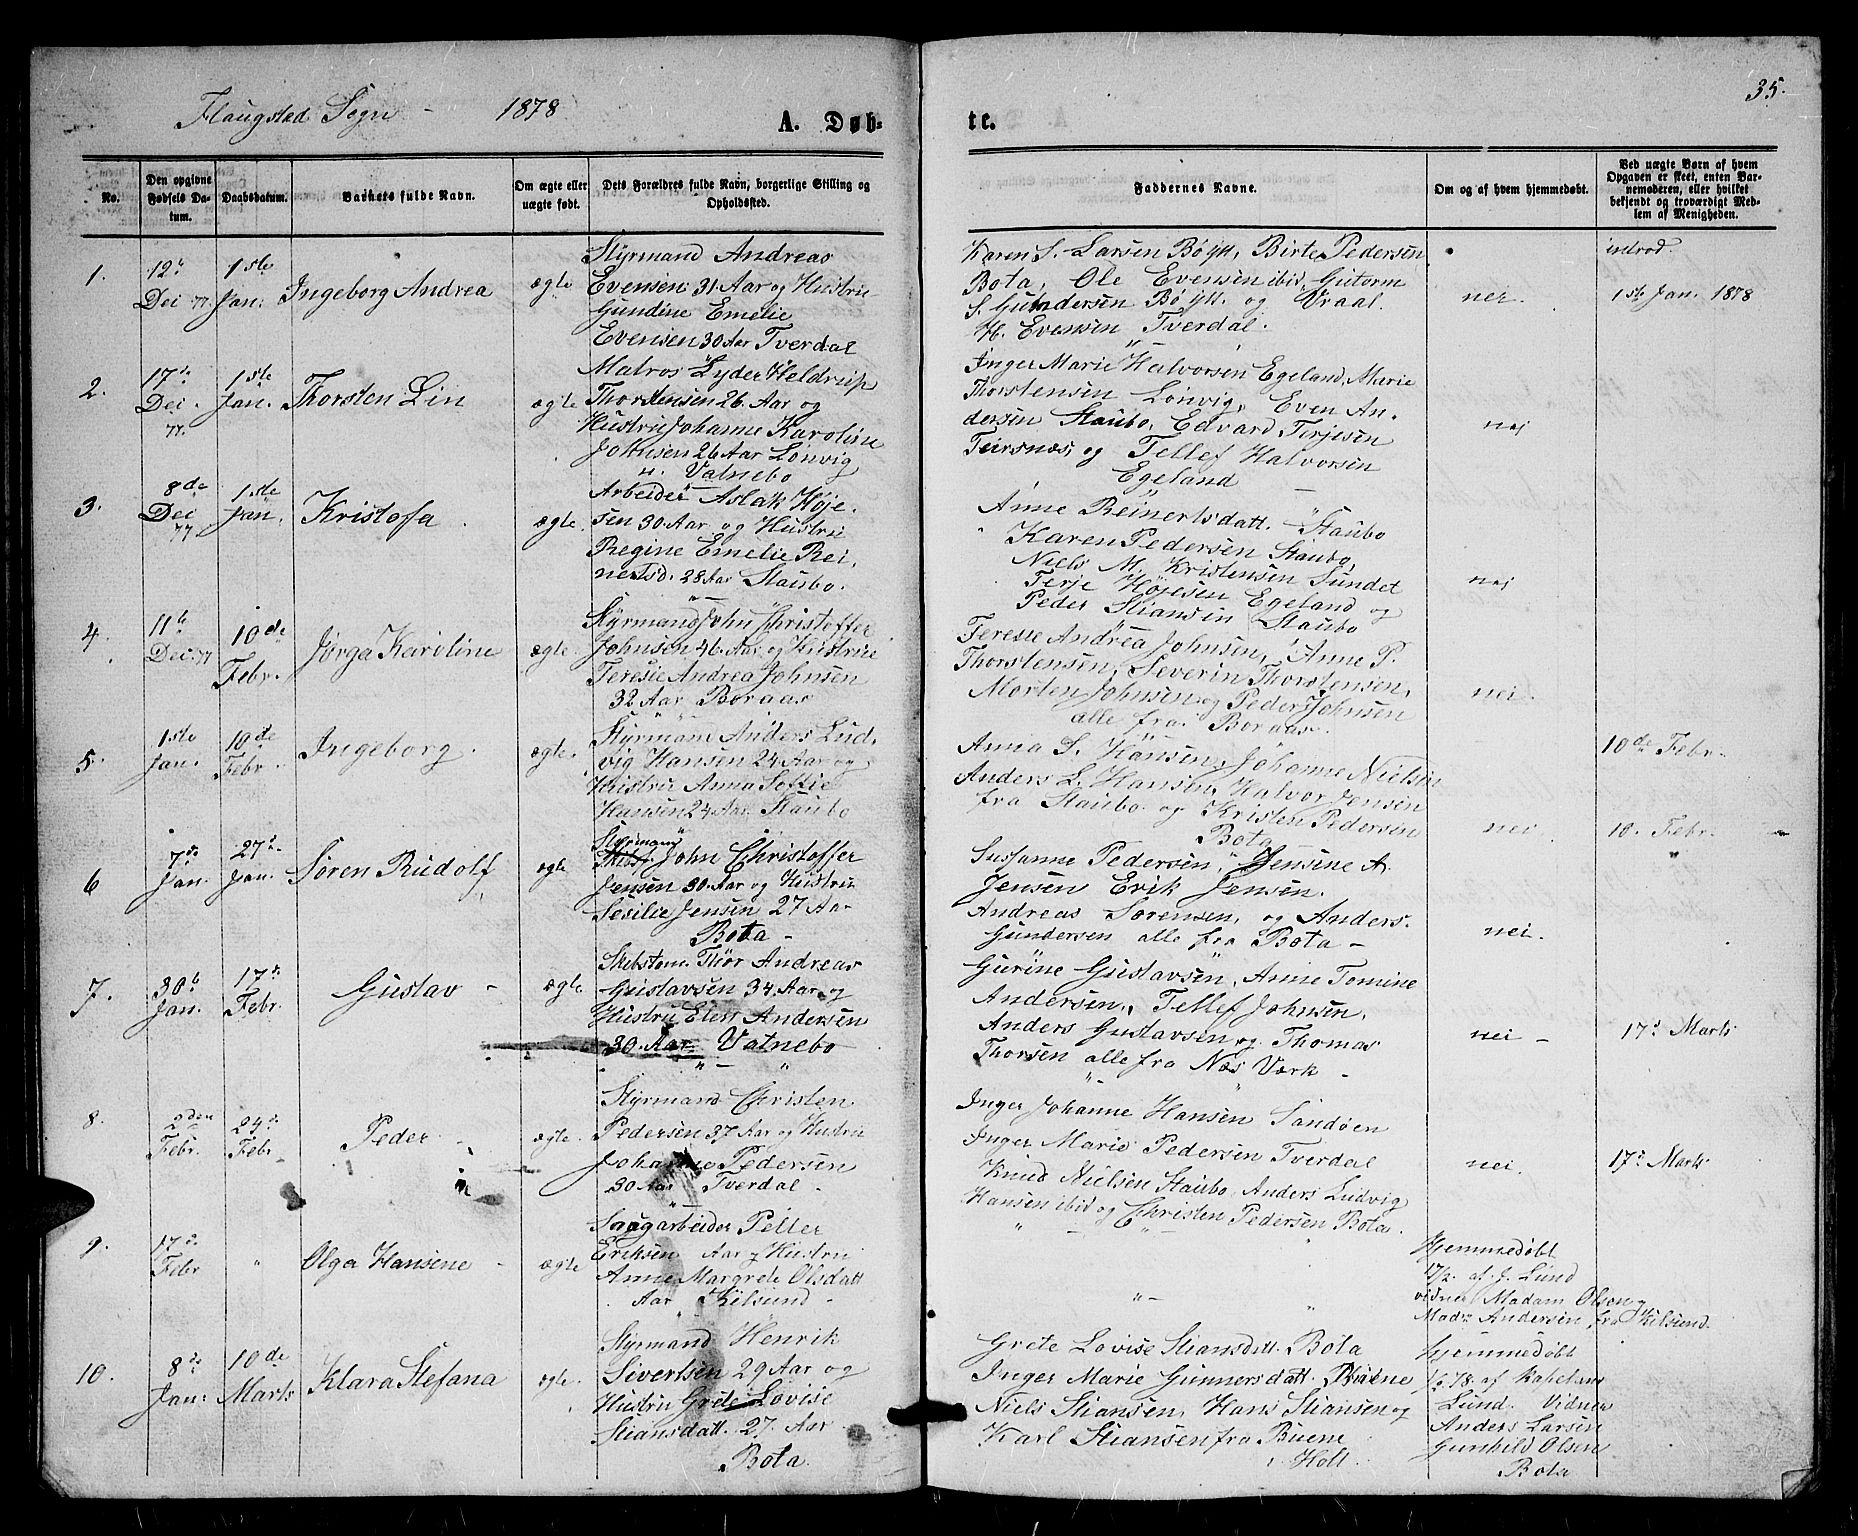 Flaugstad Sogn - 1878
A. Døb-
te.
35.
No.
Den opgivne Fødsels Da-
tum.
Daabsdatum.
Barnets fulde Navn.
Om ægte eller
uægte født.
Dets Forældres fulde Navn, borgerlige Stilling og
Opholdssted.
Faddernes Navne.
Om og af hvem hjemmedøbt.
Ved uægte Børn af hvem
Opgaven er skeet, enten Bar-
nemoderen, eller hvilket
bekjendt og troværdigt Med-
lem af Menigheden.
1.
12te
Dec 77.
1ste
Jan.
Ingeborg Andrea
ægte
Styrmand Andreas
Evensen 31 Aar og Hustru
Gundine Emelie
Evensen 30 Aar Tverdal
Karen S. Larsen Bøylt, Birte Pedersen
Bota, Ole Evensen ibid, Gutorm
S. Gundersen Bøylt. og Vraal
H. Evensen Tverdal.
nei.
introd.
1ste Jan. 1878
2.
17de
Dec.
77.
1ste
Jan.
Thorsten Lin
ægte
Matros Lyder Heldrup
Thorstensen 26 Aar og
Hustru Johanne Karoline
Johnsen 26 Aar Lønvig
u. Vatnebo
Inger Marie Halvorsen Egeland, Marie
Thorstensen Lønvig, Even An-
dersen Staubo, Edvard Terjesen
Teirsnæs, og Tellef Halvorsen
Egeland
nej
3.
8de
Dec
77.
1ste
Jan.
Kristofa.
ægte.
Arbeider Aslak Høje-
sen 30 Aar og Hustru
Regine Emelie Rei-
nertsd. 28 Aar Staubo.
Anne Reinertsdatt. Staubo
Karen Pedersen Staubo,
Niels M. Kristensen Sundet
Terje Højesen Egeland og
Peder Stiansen Staubo
nej
4.
11te
Dec. 77
10de
Febr.
Jørga Karoline
ægte.
Styrmand John Christoffer
Johnsen 46 Aar og Hustrue
Teresie Andrea Johnsen
32 Aar Boraas
Teresie Andrea Johnsen, Anne P.
Thorstensen, Severin Thorstensen,
Morten Johnsen og Peder Johnsen
alle fra Boraas.
nei.
5.
1ste
Jan.
10de
Febr.
Ingeborg.
ægte.
Styrmann Anders Lud-
vig Hansen 24 Aar og
Hustru Anna Sofie
Hansen 24 Aar Staubo
Anna S. Hansen, Johanne Nielsen
Anders L. Hansen, Halvor Jensen
fra Staubo og Kristen Pedersen
Bota
nei.
10de Febr.
6
7de
Jan.
27de
Jan.
Søren Rudolf
ægte
Styrmann
John Christoffer
Jensen 30 Aar og Hustru
Sesilie Jensen 27 Aar
Bota -
Susanne Pedersen, Jensine A.
Jensen Erik Jensen.
Andreas Sørensen, og Anders
Gundersen alle fra Bota -
nei.
10. Febr.
7.
30te
Jan.
17de
Febr.
Gustav -
ægte
Skibstøm. Thor Andreas
Gustavsen 34 Aar og
Hustru Elen Andersen
30 Aar Vatnebo
Gurine Gustavsen, Anne Tomine
Andersen, Tellef Johnsen,
Anders Gustavsen og Thomas
Thorsen alle fra Næs Værk -
nei -
17de Marts
8.
2den
Febr.
24de
Febr
Peder -
ægte.
Styrmand Christen
Pedersen 37 Aar og Hustru
Johanne Pedersen
30 Aar Tverdal -
Inger Johanne Hansen Sandøen
Inger Marie Pedersen Tverdal
Knud Nielsen Staubo, Anders Ludvig
Hansen ibid og Christen Pedersen Bota.
nei.
17de Marts
9.
17de
Febr
"
Olga Hansine -
ægte
Saugarbeider Petter
Eriksen Aar og Hustru
Anne Margrete Olsdatt
Aar Kilsund -
" -
Hjemmedøbt
17/2. af J. Lund
vidner Madam Olsen og
Madm Andersen fra Kilsund.
10.
8de
Jan.
10de
Marts
Klara Stefana
ægte.
Styrmand Henrik
Sivertsen 29 Aar og
Hustru Grete Lovise
Stiansdatt. 27 Aar
Bota.
Grete Lovise Stiansdatt. Bota
Inger Marie Gunnersdatt. Buene
Niels Stiansen, Hans Stiansen og
Karl Stiansen fra Buene
i Holt.
Hjemmedøbt
78. af Kapelan
Lund. Vidner
Anders Larsen
Gunhild Olsen
Bota